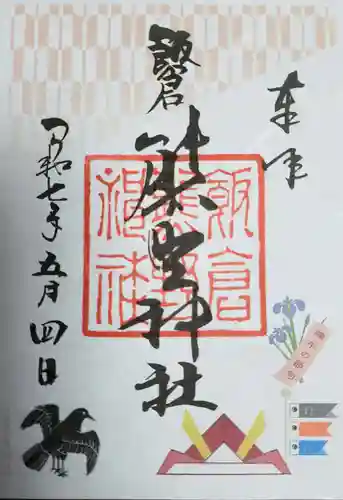 奉拝
飯倉
熊野神社
飯倉
熊野
神社
令和七年五月四日
端午の節句